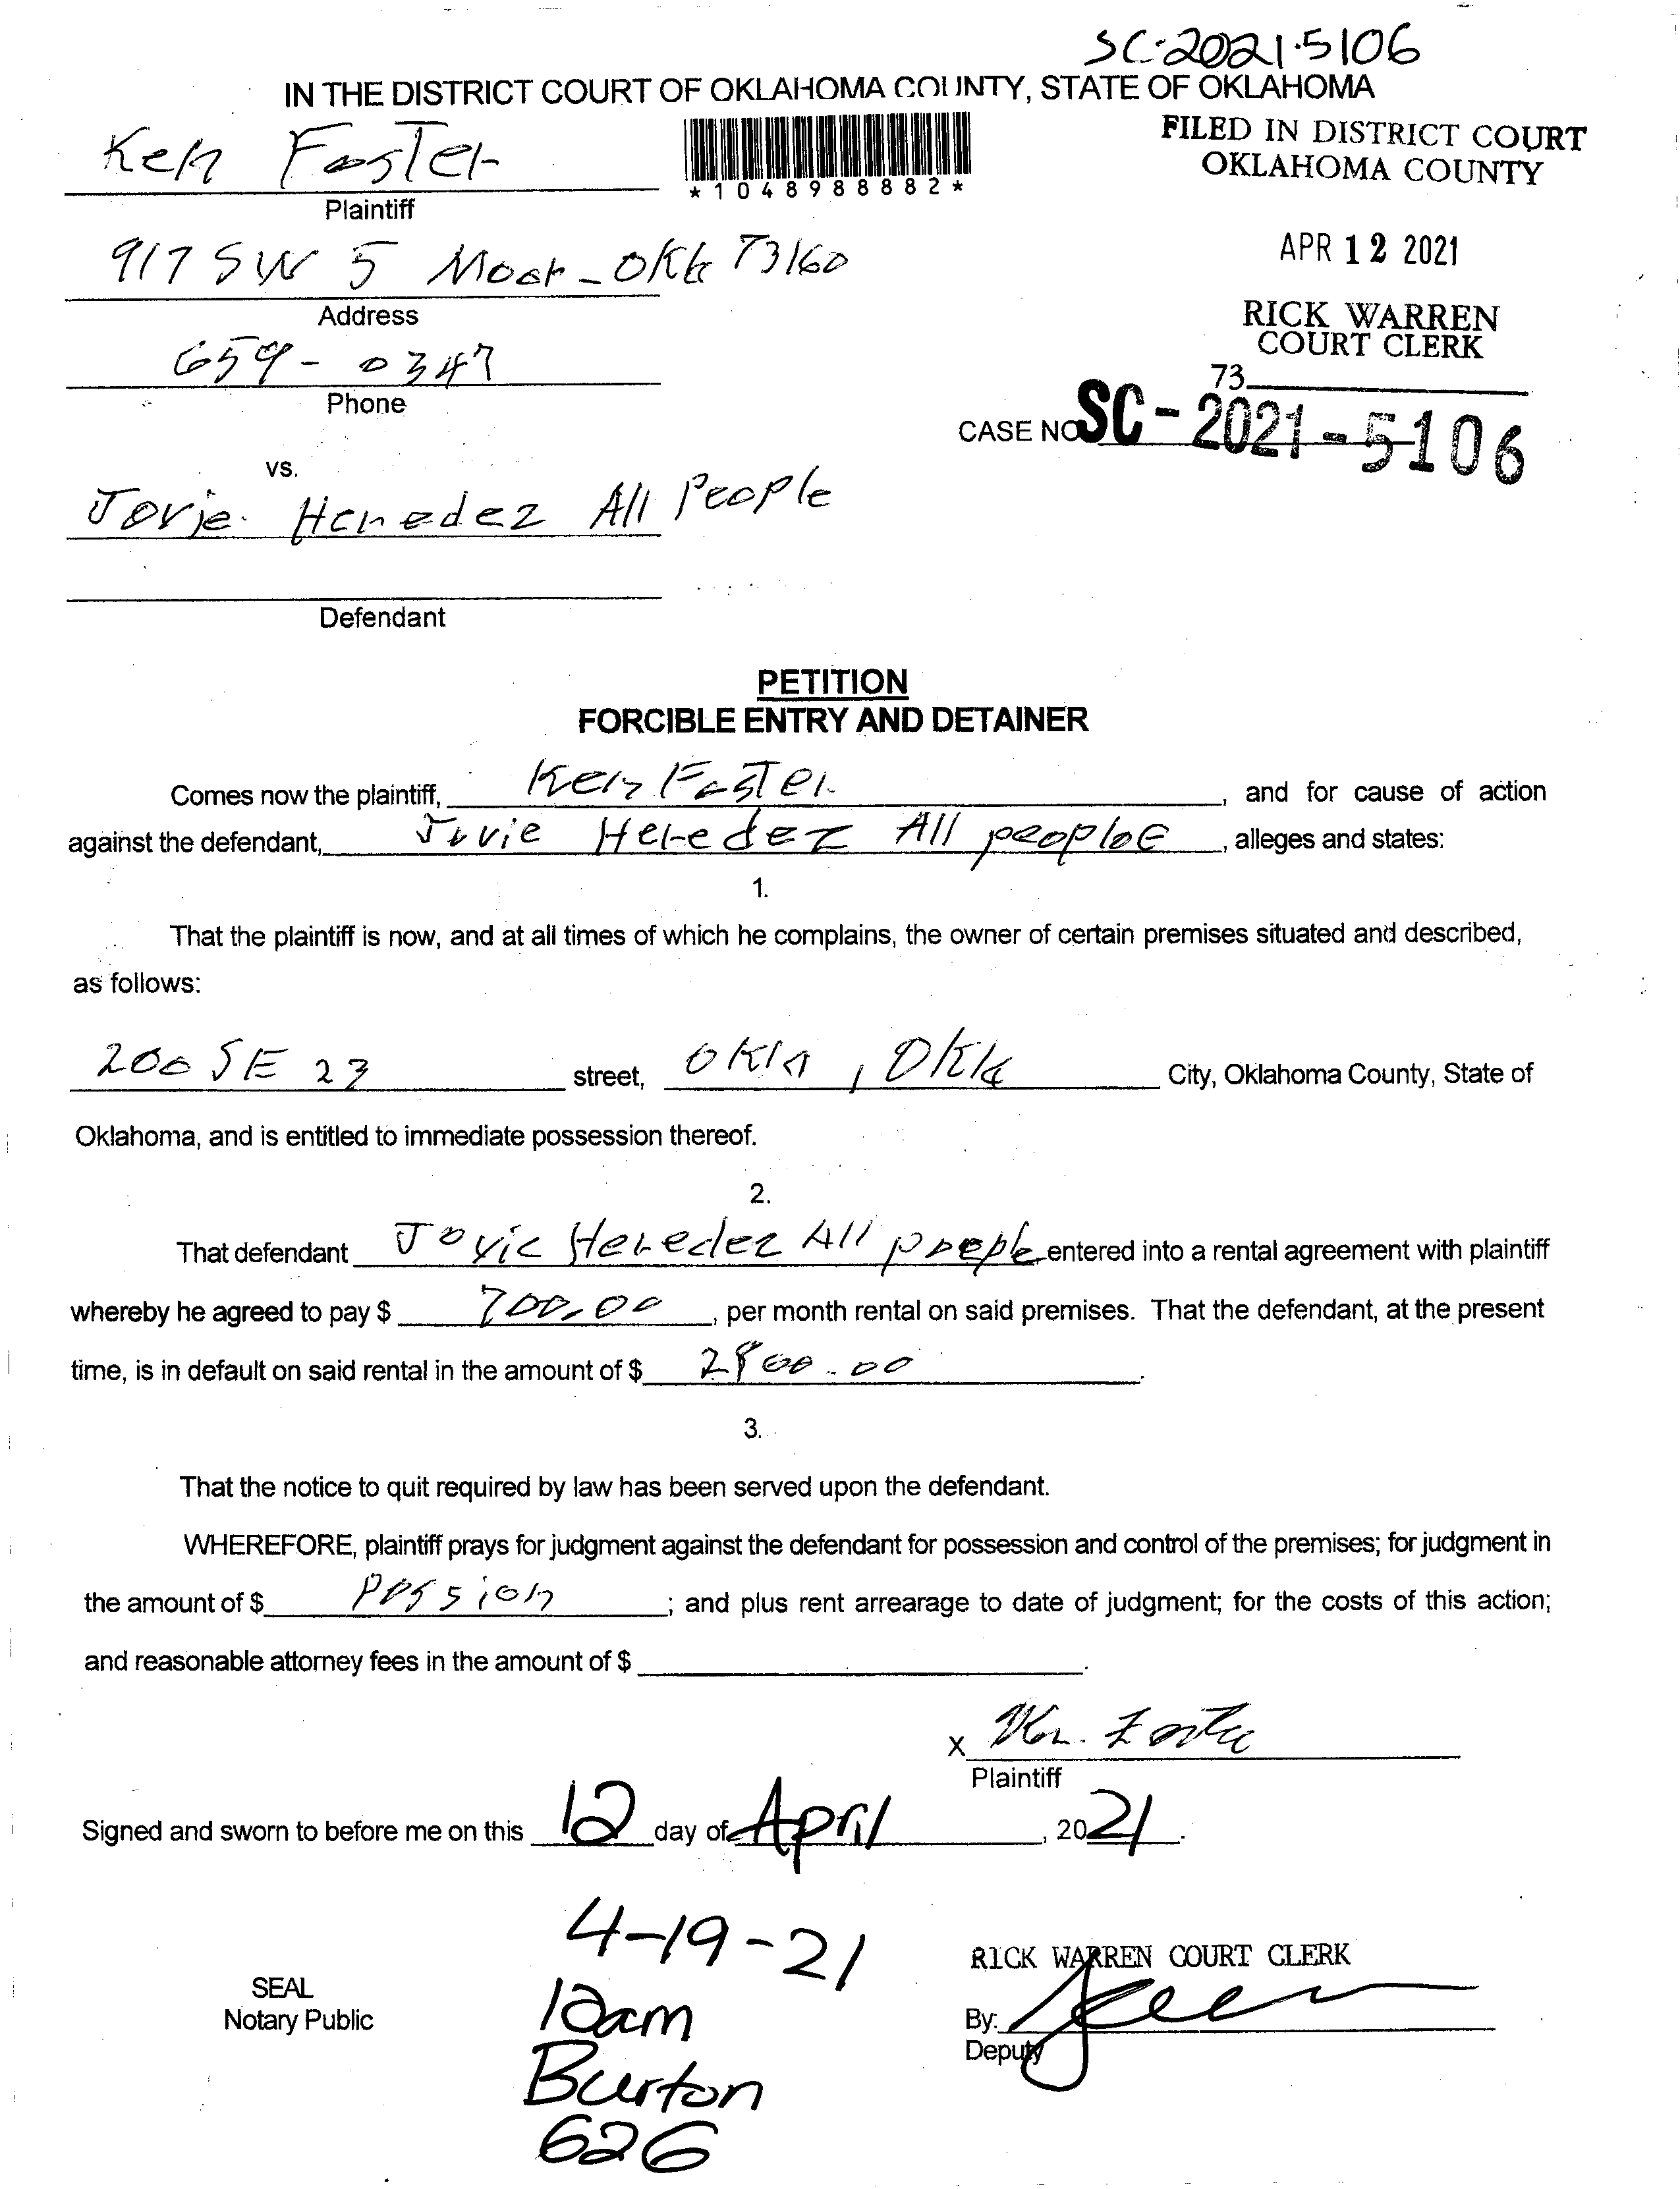 SC-2021-5106
IN THE DISTRICT COURT OF OKLAHOMA COUNTY, STATE OF OKLAHOMA
Ken Foster
Plaintiff
*1048988882*
FILED IN DISTRICT COURT
OKLAHOMA COUNTY
917 SW 5 Moor-Okla 73160
Address
APR 12 2021
659-0347
Phone
RICK WARREN
COURT CLERK
73
CASE NO. SC-2021-5106
vs.
All People
Defendant
PETITION
FORCIBLE ENTRY AND DETAINER
Comes now the plaintiff, Ken Foster, and for cause of action
against the defendant, Heredez All people, alleges and states:
1.
That the plaintiff is now, and at all times of which he complains, the owner of certain premises situated and described,
as follows:
200 SE 23 street, Okla, Okla City, Oklahoma County, State of
Oklahoma, and is entitled to immediate possession thereof.
2.
That defendant Heredez All people entered into a rental agreement with plaintiff
whereby he agreed to pay $ 700.00, per month rental on said premises. That the defendant, at the present
time, is in default on said rental in the amount of $ 2800.00.
3.
That the notice to quit required by law has been served upon the defendant.
WHEREFORE, plaintiff prays for judgment against the defendant for possession and control of the premises; for judgment in
the amount of $ Possion; and plus rent arrearage to date of judgment; for the costs of this action;
and reasonable attorney fees in the amount of $
X Ken Foster
Plaintiff
Signed and sworn to before me on this 12 day of April, 2021.
4-19-21
RICK WARREN COURT CLERK
SEAL
Notary Public
10am
By:
Deputy
Burton
626